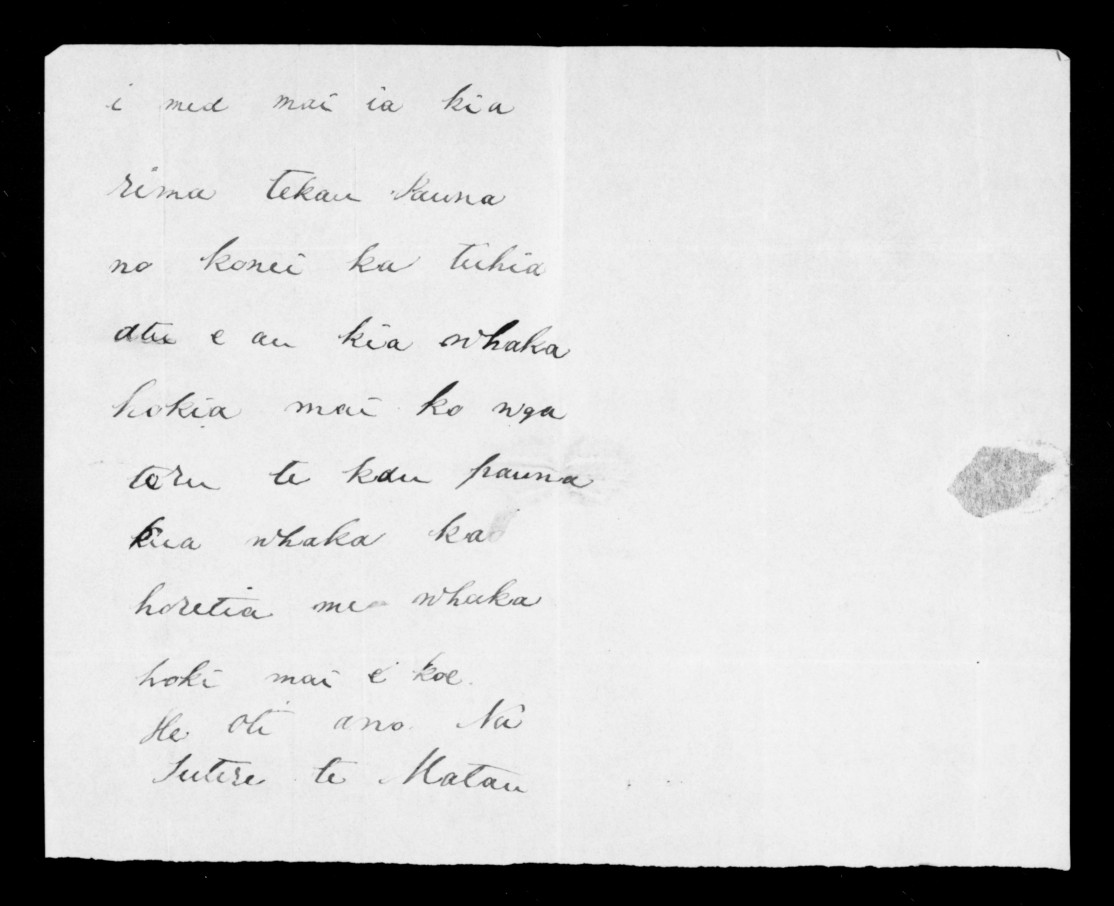 i mea mai ia kia
rima tekau Pauna
no konei ka tuhia
atu e au kia whaka
hokia mai ko nga
toru te kau pauna
kua whaka ka
horetia me whaka
hoki mai e koe.
He oti ano. Na
te Matau